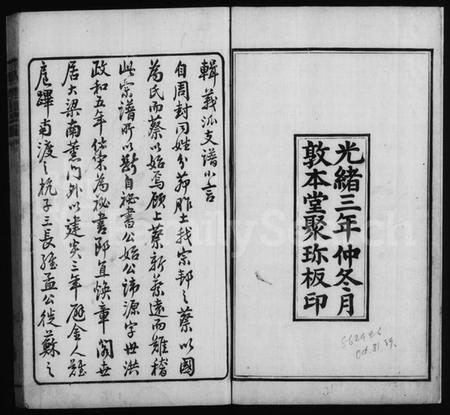 光緒三年仲冬月
敦本堂聚珍板印
輯義派支譜小言
自周封同姓分茆胙土我宗邦之蔡以國
為氏而蔡以始焉顧上蔡新蔡遠而難稽
此宗譜所以斷自祕書公始公諱源字世洪
政和五年仕宋為祕書郎直煥章閣世
居大梁南薰門外以建炎三年避金人難
扈蹕南渡之杭子三長維孟公從蘇之